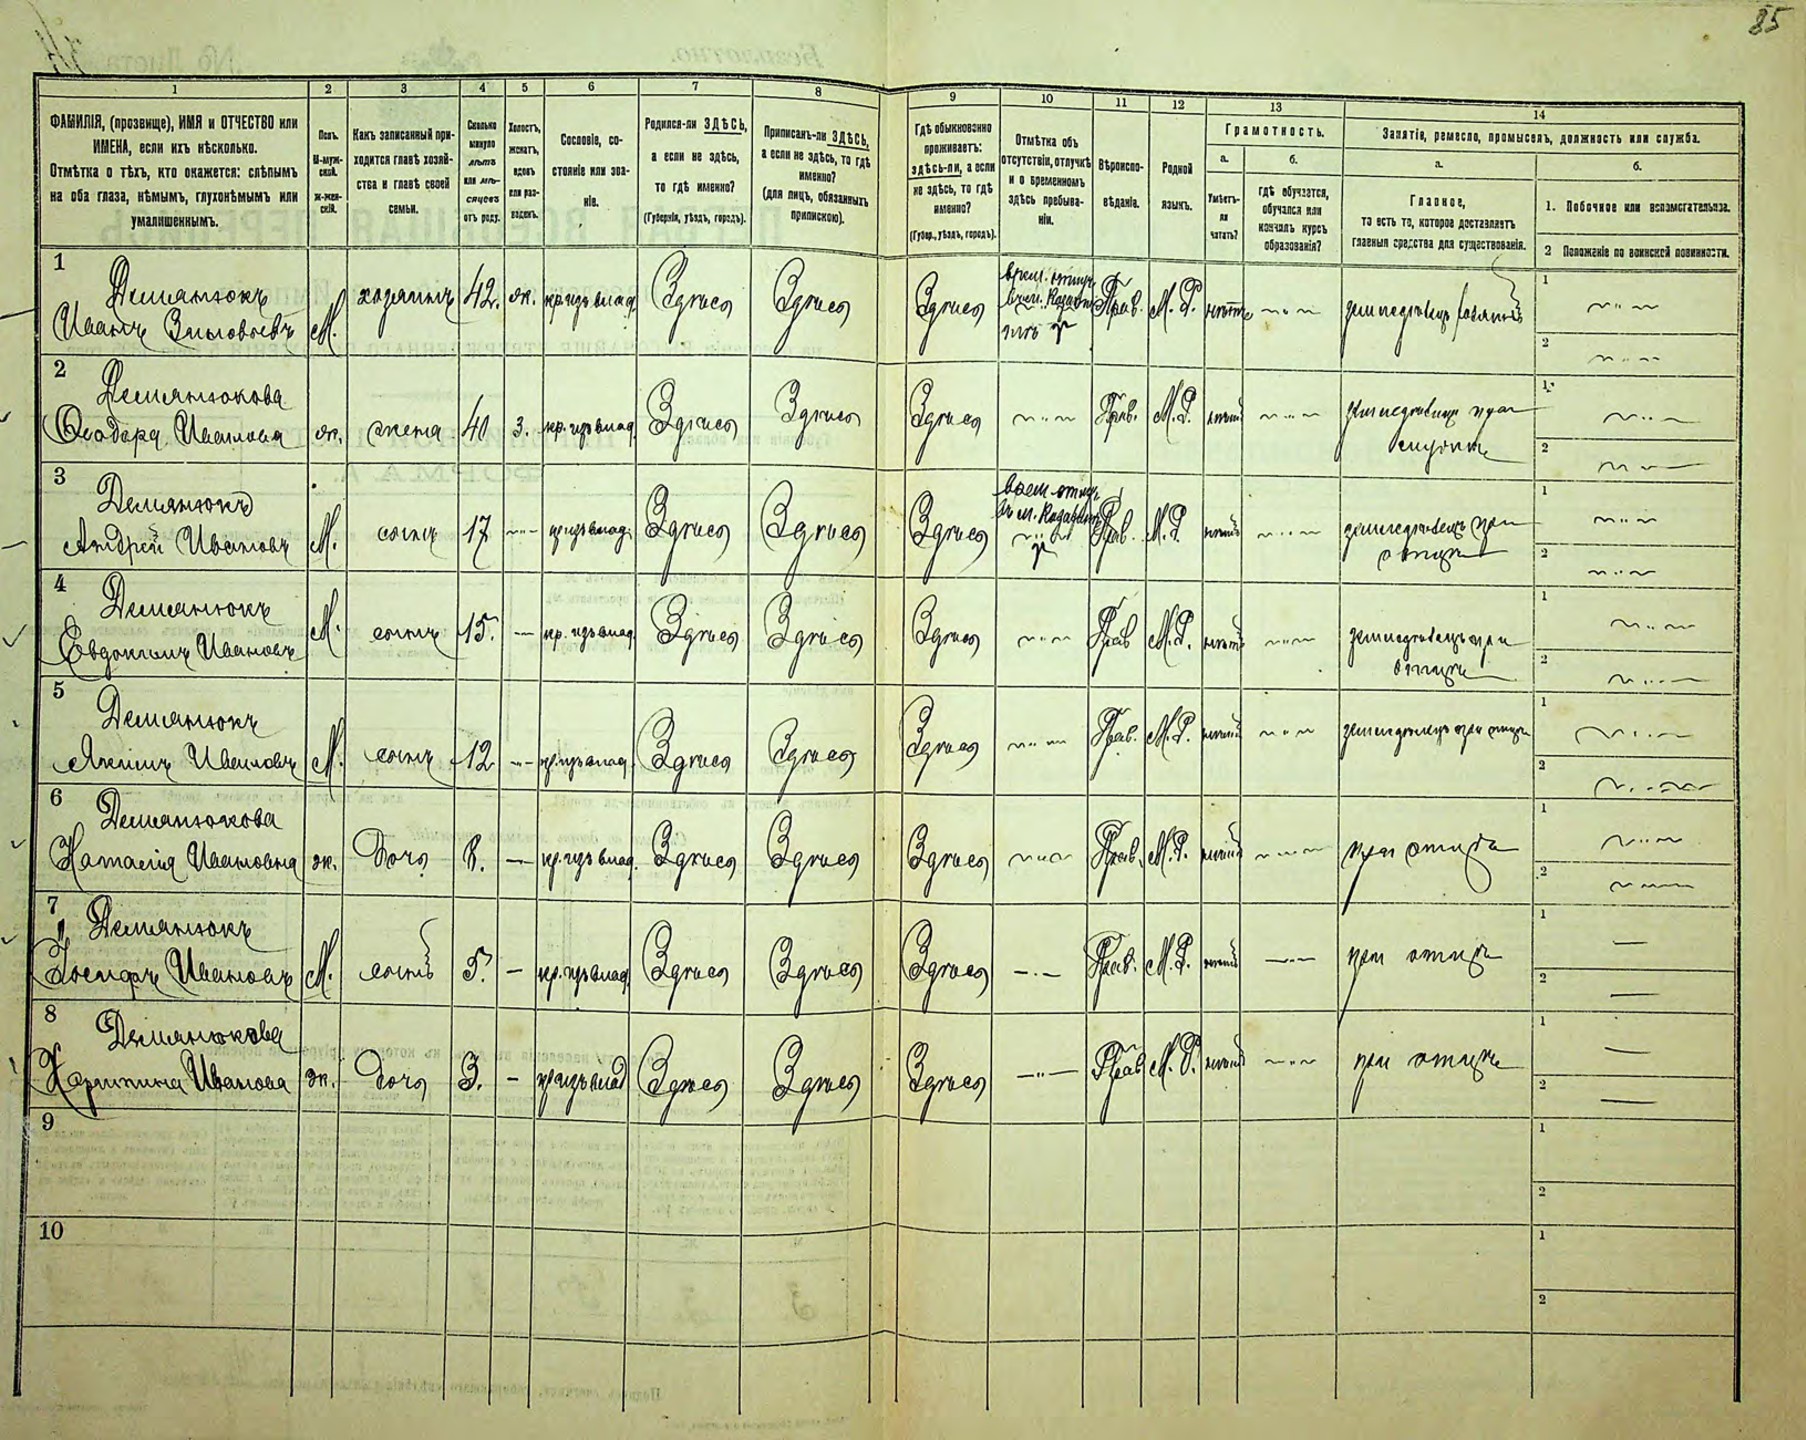 85
1
2
3
4
5
6
7
8
9
10
11
12
13
14
ФАМИЛІЯ, (прозвище), ИМЯ и ОТЧЕСТВО или
ИМЕНА, если ихъ нѣсколько.
Отмѣтка о тѣхъ, кто окажется: слѣпымъ
на оба глаза, нѣмымъ, глухонѣмымъ или
умалишеннымъ.
Полъ.
М-муж-
ской.
Ж-жен-
скій.
Какъ записанный при-
ходится главѣ хозяй-
ства и главѣ своей
семьи.
Сколько
минуло
лѣтъ
или мѣ-
сяцевъ
отъ роду.
Холостъ,
женатъ,
вдовъ
или раз-
веденъ.
Сословіе, со-
стояніе или зва-
ніе.
Родился-ли ЗДѢСЬ,
а если не здѣсь,
то гдѣ именно?
(Губернія, уѣздъ, городъ).
Приписанъ-ли ЗДѢСЬ,
а если не здѣсь, то гдѣ
именно?
(для лицъ, обязанныхъ
припискою).
Гдѣ обыкновенно
проживаетъ:
здѣсь-ли, а если
не здѣсь, то гдѣ
именно?
(Губер., уѣздъ, городъ).
Отмѣтка объ
отсутствіи, отлучкѣ
и о временномъ
здѣсь пребыва-
ніи.
Вѣроиспо-
вѣданіе.
Родной
языкъ.
Грамотность.
а.
Умѣетъ-
ли
читать?
б.
гдѣ обучается,
обучался или
кончилъ курсъ
образованія?
Занятіе, ремесло, промыселъ, должность или служба.
а.
Главное,
то есть то, которое доставляетъ
главныя средства для существованія.
б.
1. Побочное или вспомогательное.
2 Положеніе по воинской повинности.
1
Демянюкъ
Иванъ Зиновьевъ
М.
хозяинъ
42.
ж.
кр. изъ влад.
Здѣсь
Здѣсь
Здѣсь
врем. отлуч.
Прав.
М. Р.
нѣтъ
земледѣлецъ хозяинъ
1
2
2
Демянюкова
Ѳеодора Иванова
ж.
жена
40
З.
кр. изъ влад.
Здѣсь
Здѣсь
Здѣсь
Прав.
М. Р.
нѣтъ
земледѣлица при
мужѣ
1
2
3
Демянюкъ
Андрей Ивановъ
М.
сынъ
17
кр. изъ влад.
Здѣсь
Здѣсь
Здѣсь
врем. отлуч.
Прав.
М. Р.
нѣтъ
земледѣлецъ при
отцѣ
1
2
4
Демянюкъ
Евдокимъ Ивановъ
М.
сынъ
15.
кр. изъ влад.
Здѣсь
Здѣсь
Здѣсь
Прав
М. Р.
нѣтъ
земледѣлецъ при
отцѣ
1
2
5
Демянюкъ
Якимъ Ивановъ
М.
сынъ
12
кр. изъ влад.
Здѣсь
Здѣсь
Здѣсь
Прав.
М. Р.
нѣтъ
земледѣлецъ при отцѣ
1
2
6
Демянюкова
Наталія Ивановна
ж.
дочь
8.
кр. изъ влад.
Здѣсь
Здѣсь
Здѣсь
Прав.
М. Р.
нѣтъ
при отцѣ
1
2
7
Демянюкъ
Іосифъ Ивановъ
М.
сынъ
5.
кр. изъ влад.
Здѣсь
Здѣсь
Здѣсь
Прав.
М. Р.
нѣтъ
при отцѣ
1
2
8
Демянюкова
Харитина Иванова
ж.
дочь
3.
кр изъ влад
Здѣсь
Здѣсь
Здѣсь
Прав
М. Р.
нѣтъ
при отцѣ
1
2
9
1
2
10
1
2